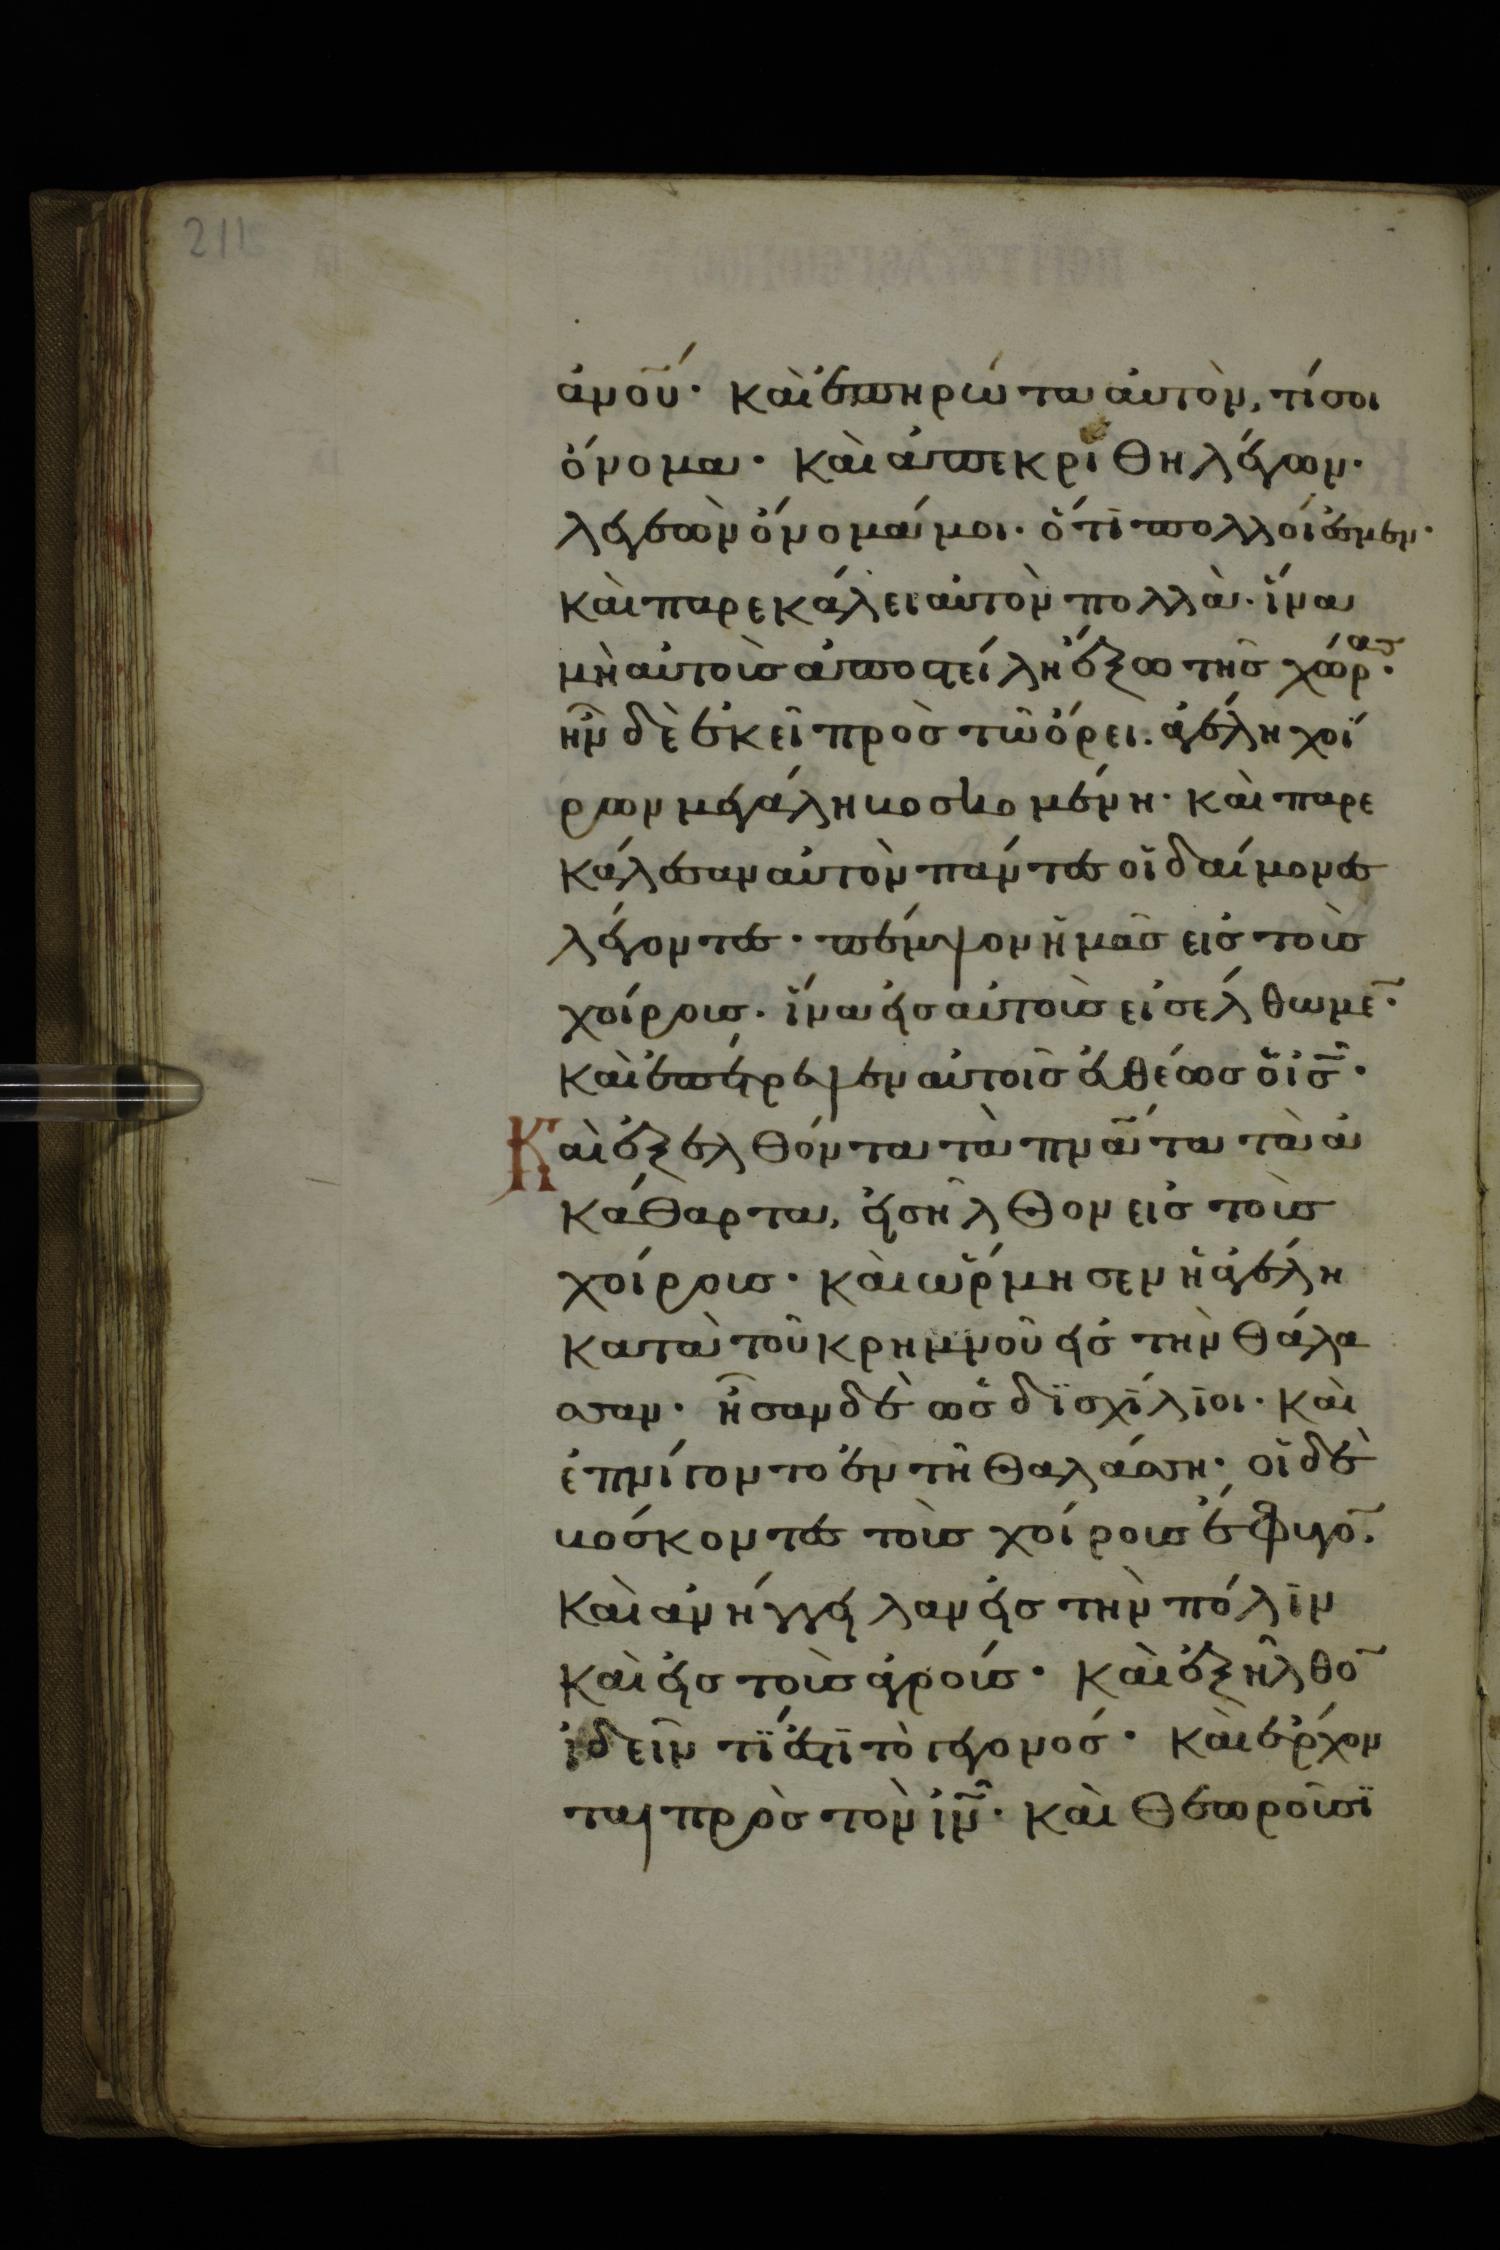 211
ἀν̅ο̅υ̅· καὶ ἐπηρώτα αὐτὸν, τί σοι
ὄνομα· καὶ ἀπεκρίθη λέγων·
λεγεὼν ὄνομά μοι· ὅτι πολλοί ἐσμεν·
καὶ παρεκάλει αὐτὸν πολλὰ· ἵνα
μὴ αὐτοὺς ἀποστείλη ἔξω τῆς χώρας·
ἦν δὲ ἐκεῖ πρὸς τῶ ὄρει· ἀγέλη χοί
ρων μεγάλη βοσκομένη· καὶ παρε
κάλεσαν αὐτὸν πάντες οἱ δαίμονες
λέγοντες· πέμψον ἡμᾶς εἰς τοὺς
χοίρους· ἵνα εἰς αὐτοὺς εἰσέλθωμε̅·
καὶ ἐπέτρεψεν αὐτοῖς εὐθέως ὁ ι̅ς̅·
Καὶ ἐξελθόντα τὰ πν̅α̅τα τὰ ἀ
κάθαρτα, εἰσῆλθον εἰς τοὺς
χοίρους· καὶ ὥρμησεν ἡ ἀγέλη
κατὰ τοῦ κρημνοῦ εἰς τὴν θάλα
σσαν· ἦσαν δὲ ὡς δισχίλιοι· καὶ
ἐπνίγοντο ἐν τῆ θαλάσση· οἱ δὲ
βόσκοντες τοὺς χοίρους ἔφυγο̅·
καὶ ἀνήγγειλαν εἰς τὴν πόλιν
καὶ εἰς τοὺς ἀγρούς· καὶ ἐξῆλθο̅
ἰδεῖν τί ἐστι τὸ γεγονός· καὶ ἔρχον
ται πρὸς τὸν ι̅ν̅· καὶ θεωροῦσι